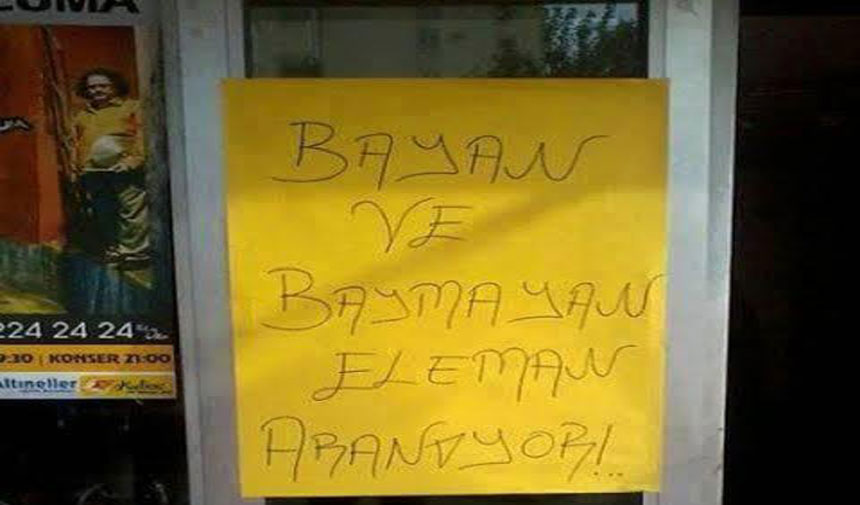 CUMA
224 24 24
9:30 | KONSER 21:00
Altıneller
BAYAN
VE
BAYMAYAN
ELEMAN
ARANIYOR!...